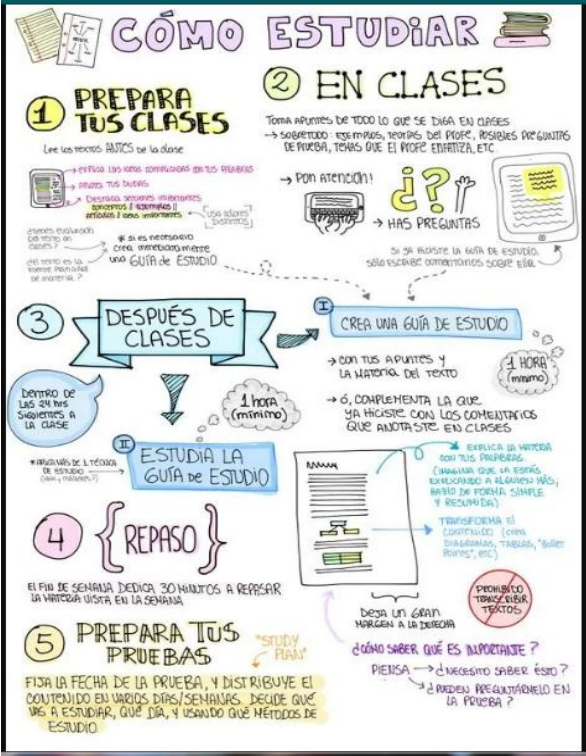 CÓMO ESTUDiAR
1 PREPARA
TUS CLASES
Lee los textos ANTES de la clase
→ explica las ideas complicadas con tus palabras
→ anota tus dudas
→ Destaca secciones importantes
conceptos // ejemplos //
artículos / ideas importantes
usa colores
distintos
¿tienes evaluación
del texto en
clases?
¿el texto es la
fuente principal
de materia?
* si es necesario
crea inmediatamente
una GUÍA de ESTUDIO
2 EN CLASES
Toma apuntes de TODO lo que se diga en clases
→ SOBRETODO: ejemplos, teorías del profe, posibles preguntas
de prueba, temas que el profe enfatiza, etc.
→ Pon atención!
¿?
→ HAS PREGUNTAS
Si ya hiciste la guía de estudio,
sólo escribe comentarios sobre ella
3 DESPUÉS DE
CLASES
DENTRO DE
LAS 24 hrs
Siguientes a
LA CLASE
1 hora
(mínimo)
I
CREA UNA GUÍA DE ESTUDIO
→ con tus apuntes y
la materia del texto
→ ó, complementa la que
ya hiciste con los comentarios
que anotaste en clases
1 HORA
(mínimo)
II
ESTUDIA LA
GUÍA de ESTUDIO
DE ESTUDIO
EXPLICA LA MATERIA
CON TUS PALABRAS.
(IMAGINA QUE LA ESTÁS
EXPLICANDO A ALGUIEN MÁS,
HAZLO DE FORMA SIMPLE
Y RESUMIDA)
TRANSFORMA El
CONTENIDO (crea
DIAGRAMAS, TABLAS, "Bullet
Points", etc)
DEJA UN GRAN
MARGEN A LA DERECHA
PROHIBIDO
TRANSCRIBIR
TEXTOS
4 {REPASO}
El FIN DE SEMANA DEDICA 30 MINUTOS A REPASAR
LA MATERIA VISTA EN LA SEMANA
5 PREPARA TUS
PRUEBAS
"STUDY
PLAN"
FIJA LA FECHA DE LA PRUEBA, Y DISTRIBUYE El
CONTENIDO EN VARIOS DÍAS/SEMANAS. DECIDE QUÉ
VAS A ESTUDIAR, QUÉ DÍA, Y USANDO QUÉ MÉTODOS DE
ESTUDIO
¿CÓMO SABER QUÉ ES IMPORTANTE?
PIENSA → ¿NECESITO SABER ÉSTO?
→ ¿PUEDEN PREGUNTÁRMELO EN
LA PRUEBA?